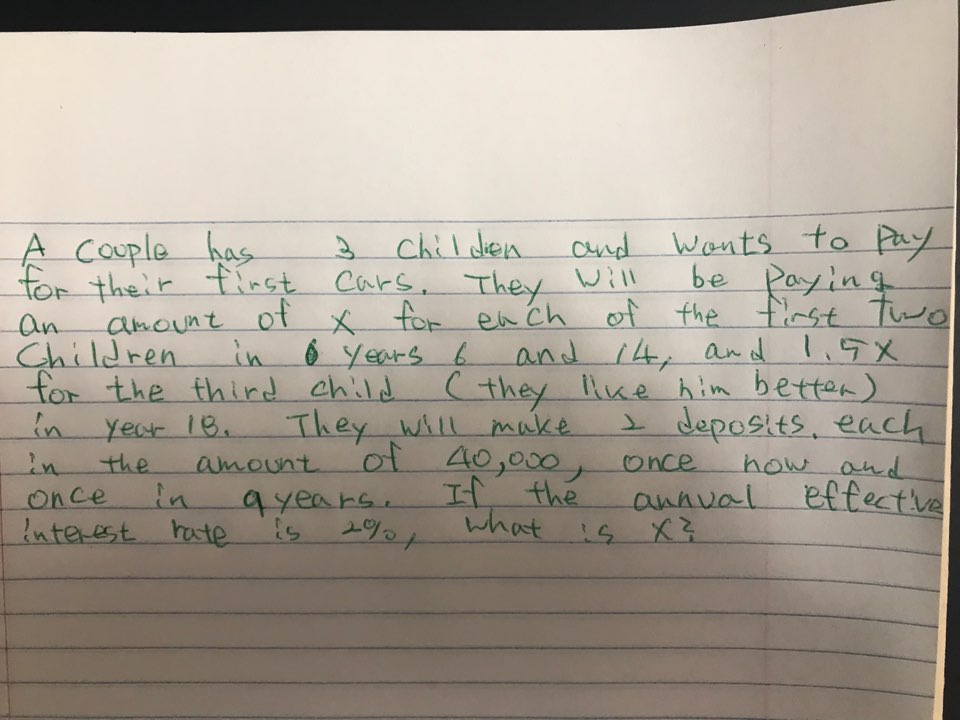 A couple has 3 children and wants to pay
for their first cars. They will be paying
an amount of x for each of the first two
Children in 6 years 6 and 14, and 1.5x
for the third child (they like him better)
in year 18. They will make 2 deposits, each
in the amount of 40,000, once now and
once in 9 years. If the annual effective
interest rate is 2%, what is x?